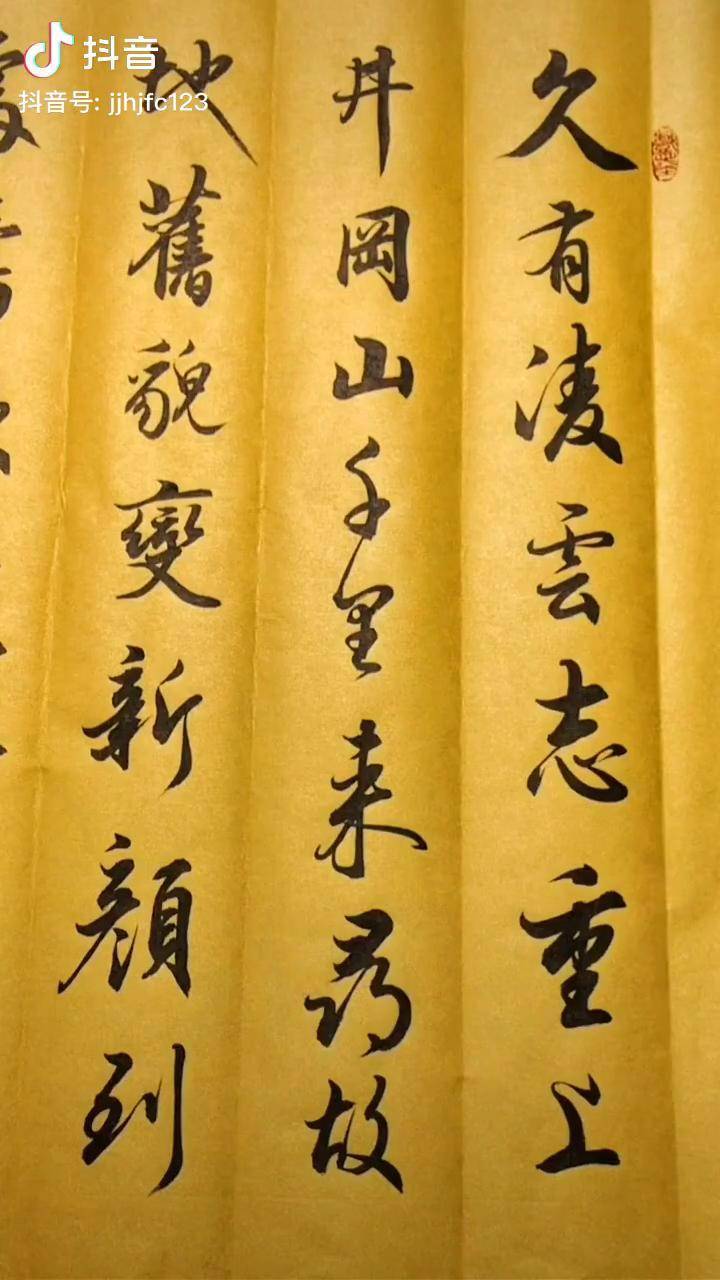 抖音
抖音号: jjhjfc123
久有凌雲志重上
井岡山千里来尋故
地舊貌變新顔到